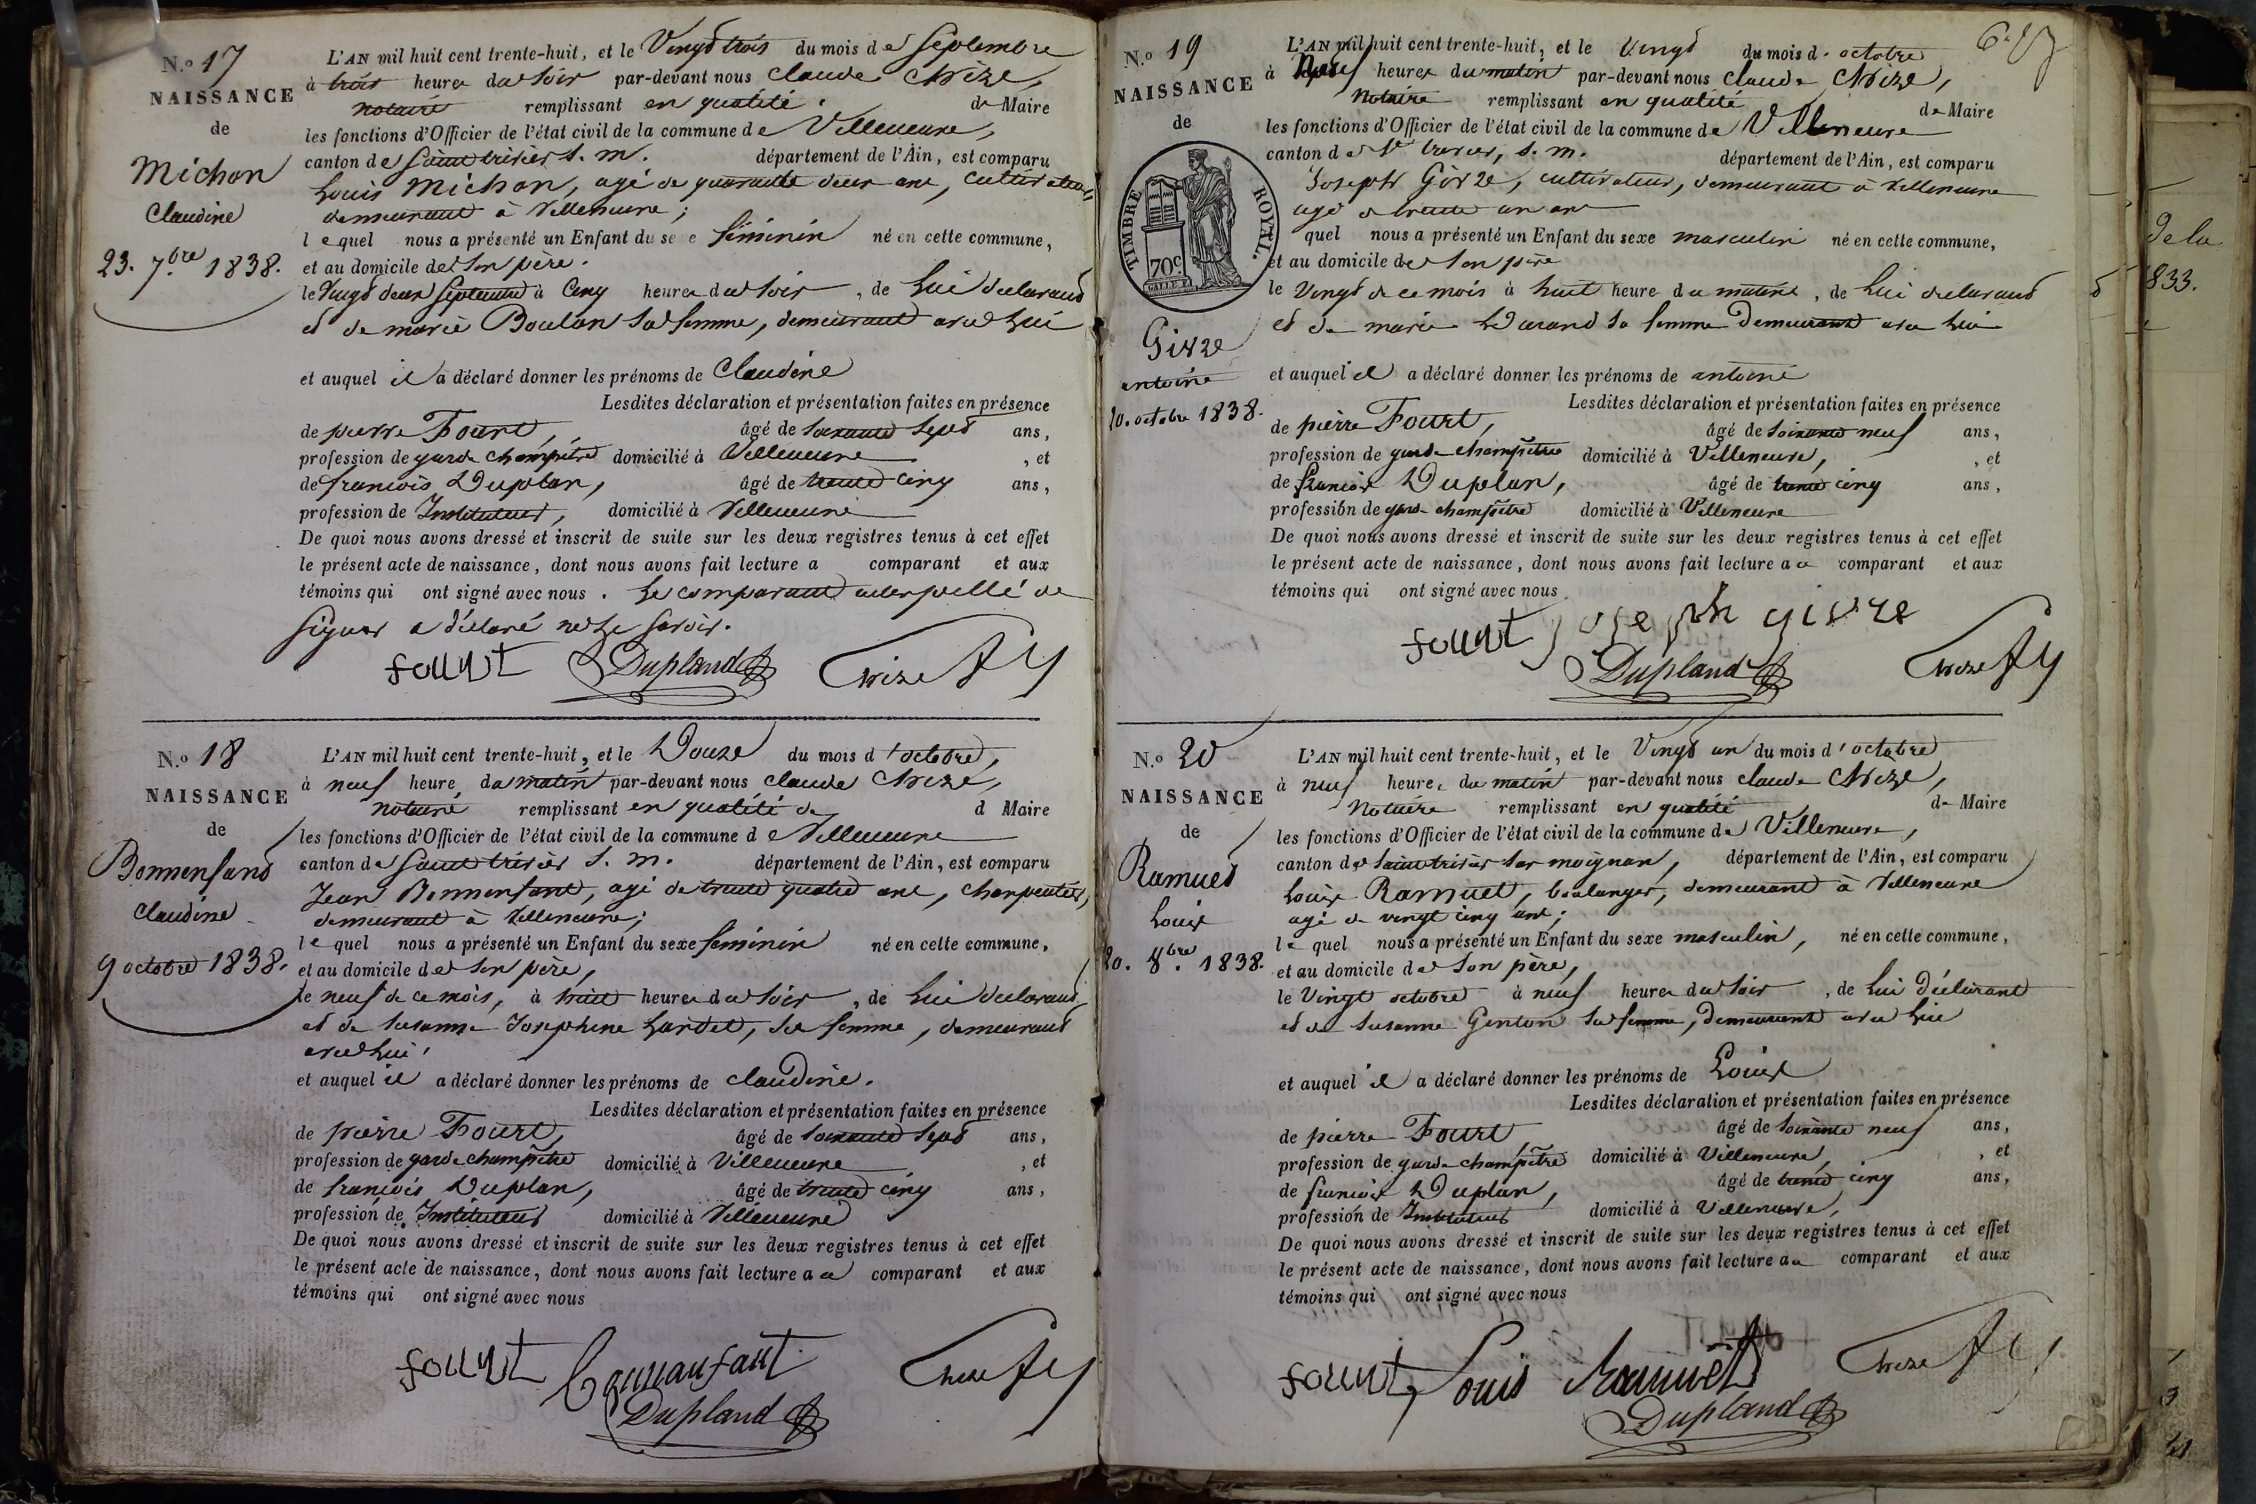 N.o 17
NAISSANCE
de
Michon
Claudine
23. 7.bre 1838.
L'AN mil huit cent trente-huit, et le Vingt trois du mois de Septembre
à trois heures du Soir par-devant nous Claude Chize,
notaire remplissant en qualité de Maire
les fonctions d'Officier de l'état civil de la commune de Villeneuve,
canton de Saint trivier s. m. département de l'Ain, est comparu
Louis Michon, agé de quarante deux ans, cultivateur,
demeurant à Villeneuve;
lequel nous a présenté un Enfant du sexe féminin né en cette commune,
et au domicile de Son père.
le Vingt deux Septembre à Cinq heures du Soir, de Lui déclarant
et de marie Boulon Sa femme, demeurant avec Lui
et auquel il a déclaré donner les prénoms de Claudine
Lesdites déclaration et présentation faites en présence
de pierre Fourt, âgé de Soixante Sept ans,
profession de garde champêtre domicilié à Villeneuve, et
de francois Duplan, âgé de trente cinq ans,
profession de Instituteur, domicilié à Villeneuve
De quoi nous avons dressé et inscrit de suite sur les deux registres tenus à cet effet
le présent acte de naissance, dont nous avons fait lecture a comparant et aux
témoins qui ont signé avec nous. Le comparant interpellé de
Signer a déclaré ne le Savoir.
fount Dupland Chize
N.o 18
NAISSANCE
de
Bonnenfant
Claudine
9 octobre 1838.
L'AN mil huit cent trente-huit, et le Douze du mois d'octobre,
à neuf heure du matin par-devant nous Claude Chize,
notaire remplissant en qualité de d Maire
les fonctions d'Officier de l'état civil de la commune de Villeneuve
canton de Saint trivier S. m. département de l'Ain, est comparu
Jean Bonnenfant, agé de trente quatre ans, charpentier,
demeurant à Villeneuve;
lequel nous a présenté un Enfant du sexe féminin né en cette commune,
et au domicile de Son père,
le neuf de ce mois, à huit heures du Soir, de Lui déclarant,
et de Susanne Josephine Lardet, Sa femme, demeurant
avec Lui.
et auquel il a déclaré donner les prénoms de claudine.
Lesdites déclaration et présentation faites en présence
de pierre Fourt, âgé de Soixante Sept ans,
profession de garde champêtre domicilié à Villeneuve, et
de francois Duplan, âgé de trente cinq ans,
profession de Instituteur domicilié à Villeneuve
De quoi nous avons dressé et inscrit de suite sur les deux registres tenus à cet effet
le présent acte de naissance, dont nous avons fait lecture au comparant et aux
témoins qui ont signé avec nous
fount Bonnanfant Chize
Dupland
N.o 19
NAISSANCE
de
TIMBRE ROYAL.
70c
Givre
antoine
20. octobre 1838.
L'AN mil huit cent trente-huit, et le Vingt du mois d'octobre
à Neuf heures du matin par-devant nous Claude Chize,
Notaire remplissant en qualité de Maire
les fonctions d'Officier de l'état civil de la commune de Villeneuve
canton de St trivier, s. m. département de l'Ain, est comparu
Joseph Givre, cultivateur, demeurant à Villeneuve
agé de trente un ans
quel nous a présenté un Enfant du sexe masculin né en cette commune,
et au domicile de Son père
le Vingt de ce mois à huit heure du matin, de Lui déclarant
et de marie Durand Sa femme Demeurant avec Lui
et auquel il a déclaré donner les prénoms de antoine
Lesdites déclaration et présentation faites en présence
de pierre Fourt, âgé de Soixante neuf ans,
profession de garde champêtre domicilié à Villeneuve, et
de francois Duplan, âgé de trente cinq ans,
profession de garde champêtre domicilié à Villeneuve
De quoi nous avons dressé et inscrit de suite sur les deux registres tenus à cet effet
le présent acte de naissance, dont nous avons fait lecture au comparant et aux
témoins qui ont signé avec nous
fount joseph givre
Dupland Chize
N.o 20
NAISSANCE
de
Ramuet
Louis
20. 8.bre 1838.
L'AN mil huit cent trente-huit, et le Vingt un du mois d'octobre
à neuf heures du matin par-devant nous Claude Chize,
Notaire remplissant en qualité de Maire
les fonctions d'Officier de l'état civil de la commune de Villeneuve,
canton de Saint trivier Sur moignan, département de l'Ain, est comparu
Louis Ramuet, boulanger, demeurant à Villeneuve
agé de vingt cinq ans;
lequel nous a présenté un Enfant du sexe masculin, né en cette commune,
et au domicile de Son père,
le Vingt octobre à neuf heures du Soir, de Lui déclarant
et de Susanne Genton Sa femme, Demeurant avec Lui
et auquel il a déclaré donner les prénoms de Louis
Lesdites déclaration et présentation faites en présence
de pierre Fourt âgé de Soixante neuf ans,
profession de garde champêtre domicilié à Villeneuve, et
de francois Duplan, âgé de trente cinq ans,
profession de Instituteur domicilié à Villeneuve,
De quoi nous avons dressé et inscrit de suite sur les deux registres tenus à cet effet
le présent acte de naissance, dont nous avons fait lecture au comparant et aux
témoins qui ont signé avec nous
fount Louis Ramuet Chize
Dupland
De la
1833.